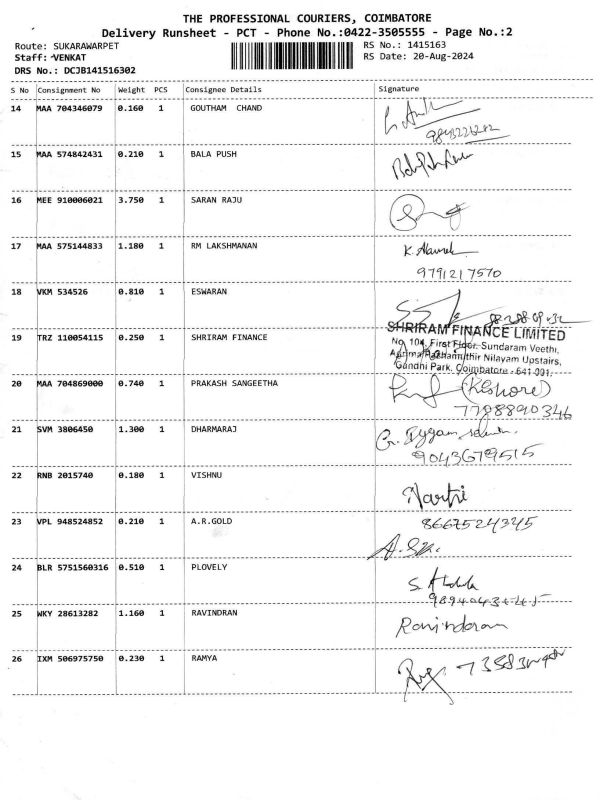 THE PROFESSIONAL COURIERS, COIMBATORE
Delivery Runsheet - PCT - Phone No.:0422-3505555 - Page No.:2
Route: SUKARAWARPET RS No.: 1415163
Staff: VENKAT RS Date: 20-Aug-2024
DRS No.: DCJB141516302
S No Consignment No Weight PCS Consignee Details Signature
14 MAA 704346079 0.160 1 GOUTHAM CHAND
15 MAA 574842431 0.210 1 BALA PUSH
16 MEE 910006021 3.750 1 SARAN RAJU
17 MAA 575144833 1.180 1 RM LAKSHMANAN
9791217570
18 VKM 534526 0.810 1 ESWARAN
SHRIRAM FINANCE LIMITED
19 TRZ 110054115 0.250 1 SHRIRAM FINANCE
No. 104, First Floor, Sundaram Veethi,
Nilayam Upstairs,
Gandhi Park, Coimbatore - 641 001.
20 MAA 704869000 0.740 1 PRAKASH SANGEETHA (Kishore)
7798890346
21 SVM 3806450 1.300 1 DHARMARAJ
9043679515
22 RNB 2015740 0.180 1 VISHNU
23 VPL 948524852 0.210 1 A.R.GOLD 8667524345
24 BLR 5751560316 0.510 1 PLOVELY
25 WKY 28613282 1.160 1 RAVINDRAN
Ravindaran
26 IXM 506975750 0.230 1 RAMYA